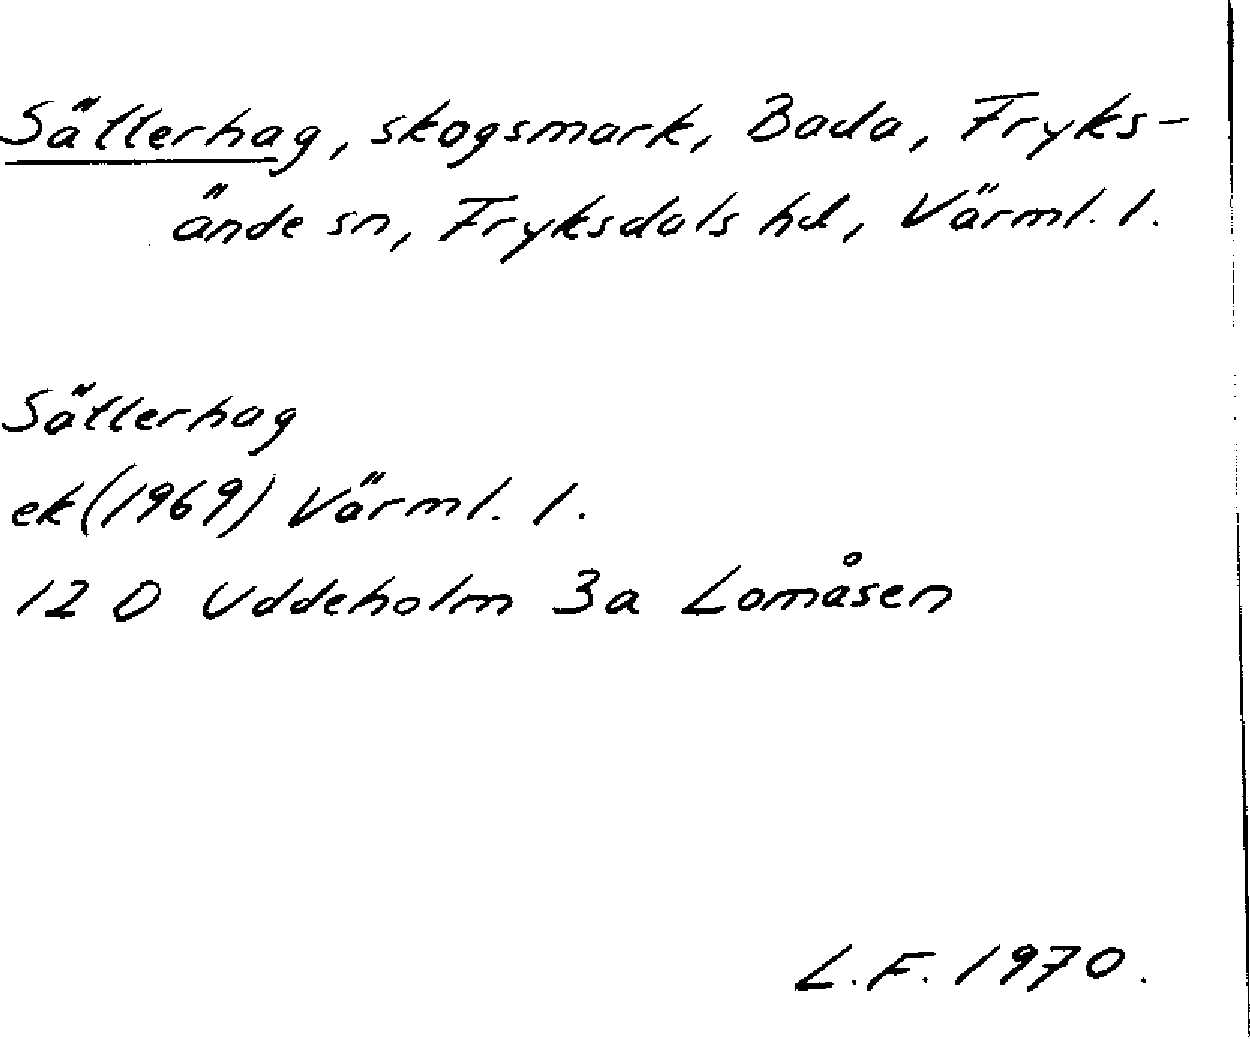 Sätterhag, skogsmark, Bada, Fryks-
ände sn, Fryksdals hd, Värml. l.
Sätterhag
ek (1969) Värml. l.
12 D Uddeholm 3a Lomåsen
L.F. 1970.